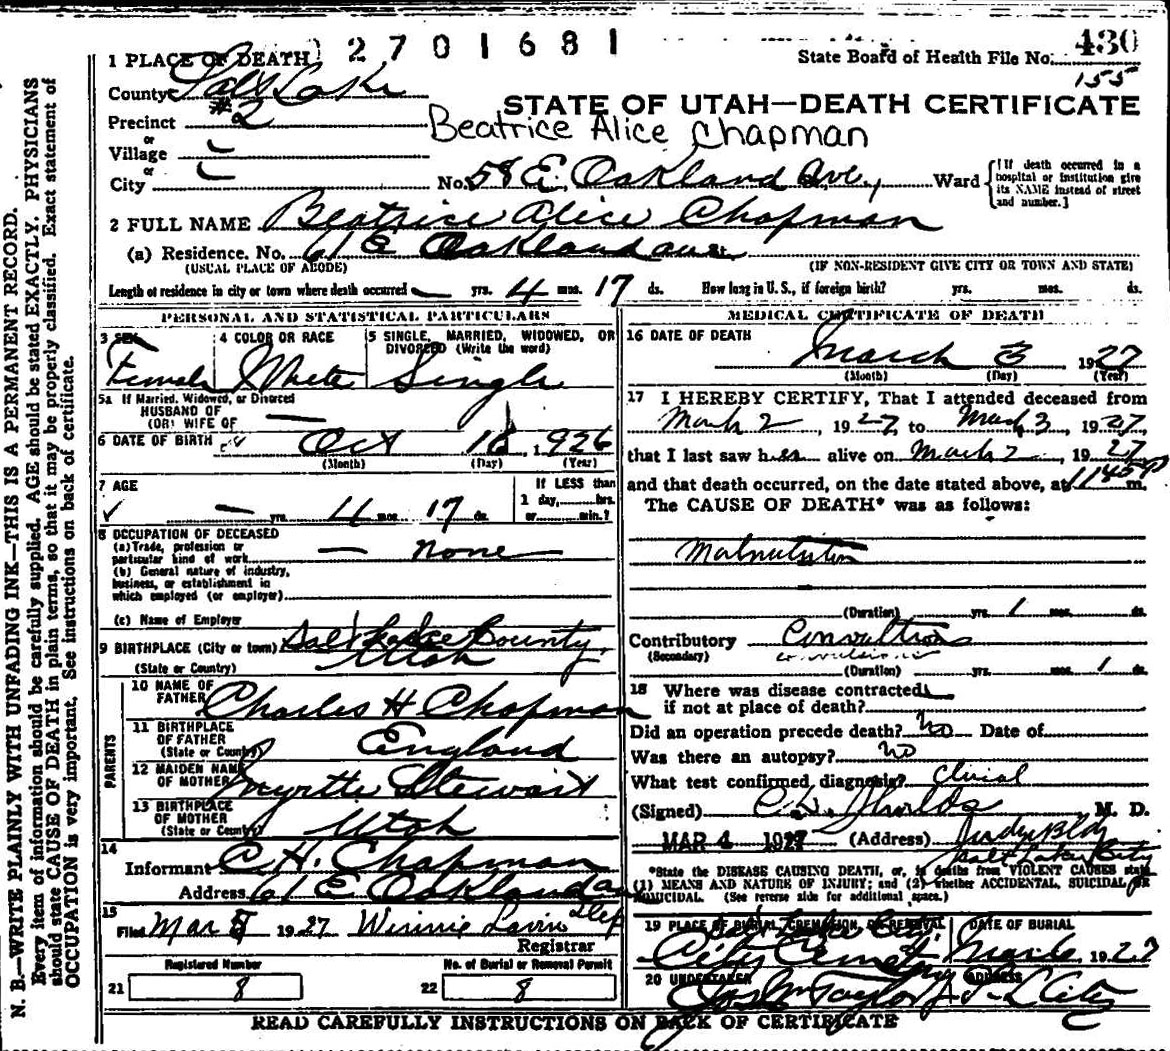 2701681
State Board of Health File No. 430
155
1 PLACE OF DEATH
County Salt Lake
STATE OF UTAH—DEATH CERTIFICATE
Precinct #2
Beatrice Alice Chapman
or
Village
or
City No. 58 E. Oakland Ave., Ward
[If death occurred in a hospital or institution give its NAME instead of street and number.]
2 FULL NAME Beatrice Alice Chapman
(a) Residence. No. 61 E Oakland ave
(USUAL PLACE OF ABODE) (IF NON-RESIDENT GIVE CITY OR TOWN AND STATE)
Length of residence in city or town where death occurred — yrs. 4 mos. 17 ds. How long in U.S., if foreign birth? yrs. mos. ds.
PERSONAL AND STATISTICAL PARTICULARS
3 SEX Female
4 COLOR OR RACE White
5 SINGLE, MARRIED, WIDOWED, OR DIVORCED (Write the word) Single
5a If Married, Widowed, or Divorced
HUSBAND OF
(OR) WIFE OF —
6 DATE OF BIRTH Oct 16, 1926
(Month) (Day) (Year)
7 AGE — yrs. 4 mos. 17 ds.
If LESS than
1 day, hrs.
or min.?
8 OCCUPATION OF DECEASED
(a) Trade, profession or
particular kind of work — none
(b) General nature of industry,
business, or establishment in
which employed (or employer)
(c) Name of Employer
9 BIRTHPLACE (City or town) Salt Lake County
(State or Country) Utah
PARENTS
10 NAME OF
FATHER Charles H Chapman
11 BIRTHPLACE
OF FATHER England
(State or Country)
12 MAIDEN NAME
OF MOTHER Myrtle Stewart
13 BIRTHPLACE
OF MOTHER Utah
(State or Country)
14
Informant C H. Chapman
Address 61 E Oakland ave
15
Filed Mar 5 1927 Winnie Lavin Dep
Registrar
Registered Number No. of Burial or Removal Permit
21 8 22 8
MEDICAL CERTIFICATE OF DEATH
16 DATE OF DEATH
March 3 1927
(Month) (Day) (Year)
17 I HEREBY CERTIFY, That I attended deceased from
March 2, 1927, to March 3, 1927,
that I last saw her alive on March 2, 1927
and that death occurred, on the date stated above, at 1145 P m.
The CAUSE OF DEATH* was as follows:
Malnutrition
(Duration) yrs. 1 mos. ds.
Contributory Convultions
(Secondary) convulsions
(Duration) yrs. mos. 1 ds.
18 Where was disease contracted
if not at place of death?
Did an operation precede death? no Date of
Was there an autopsy? no
What test confirmed diagnosis? Clinical
(Signed) C. L. Shields M. D.
MAR 4 1927 (Address) Judge Bldg
Salt Lake City
*State the DISEASE CAUSING DEATH, or, in deaths from VIOLENT CAUSES state
(1) MEANS AND NATURE OF INJURY; and (2) whether ACCIDENTAL, SUICIDAL or
HOMICIDAL. (See reverse side for additional space.)
19 PLACE OF BURIAL, CREMATION, OR REMOVAL DATE OF BURIAL
City Cemetery Mar 6 1927
20 UNDERTAKER ADDRESS
Jos Wm Taylor S L City
READ CAREFULLY INSTRUCTIONS ON BACK OF CERTIFICATE
N. B.—WRITE PLAINLY WITH UNFADING INK—THIS IS A PERMANENT RECORD.
Every item of information should be carefully supplied. AGE should be stated EXACTLY. PHYSICIANS
should state CAUSE OF DEATH in plain terms, so that it may be properly classified. Exact statement of
OCCUPATION is very important. See instructions on back of certificate.